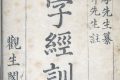 先生纂
先生註
字經訓
觀生閣